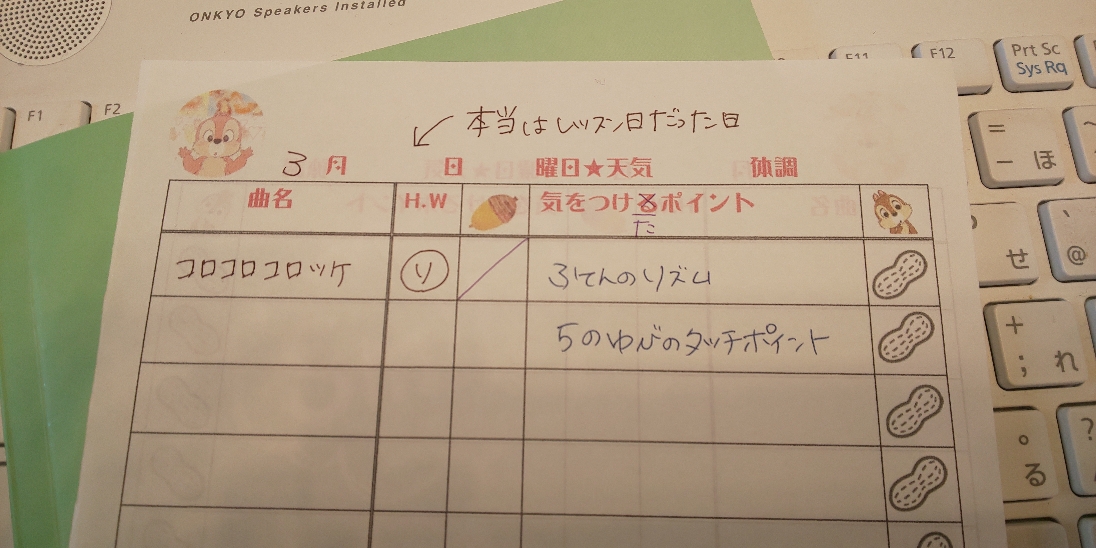 ONKYO Speakers Installed
F11
F12
Prt Sc
Sys Rq
F1
F2
本当はレッスン日だった日
3月 日 曜日★天気 体調
曲名 H.W 気をつけるポイント
た
コロコロコロッケ リ ふてんのリズム
5のゆびのタッチポイント
=
- ほ
せ
@
+
; れ
。
る
?